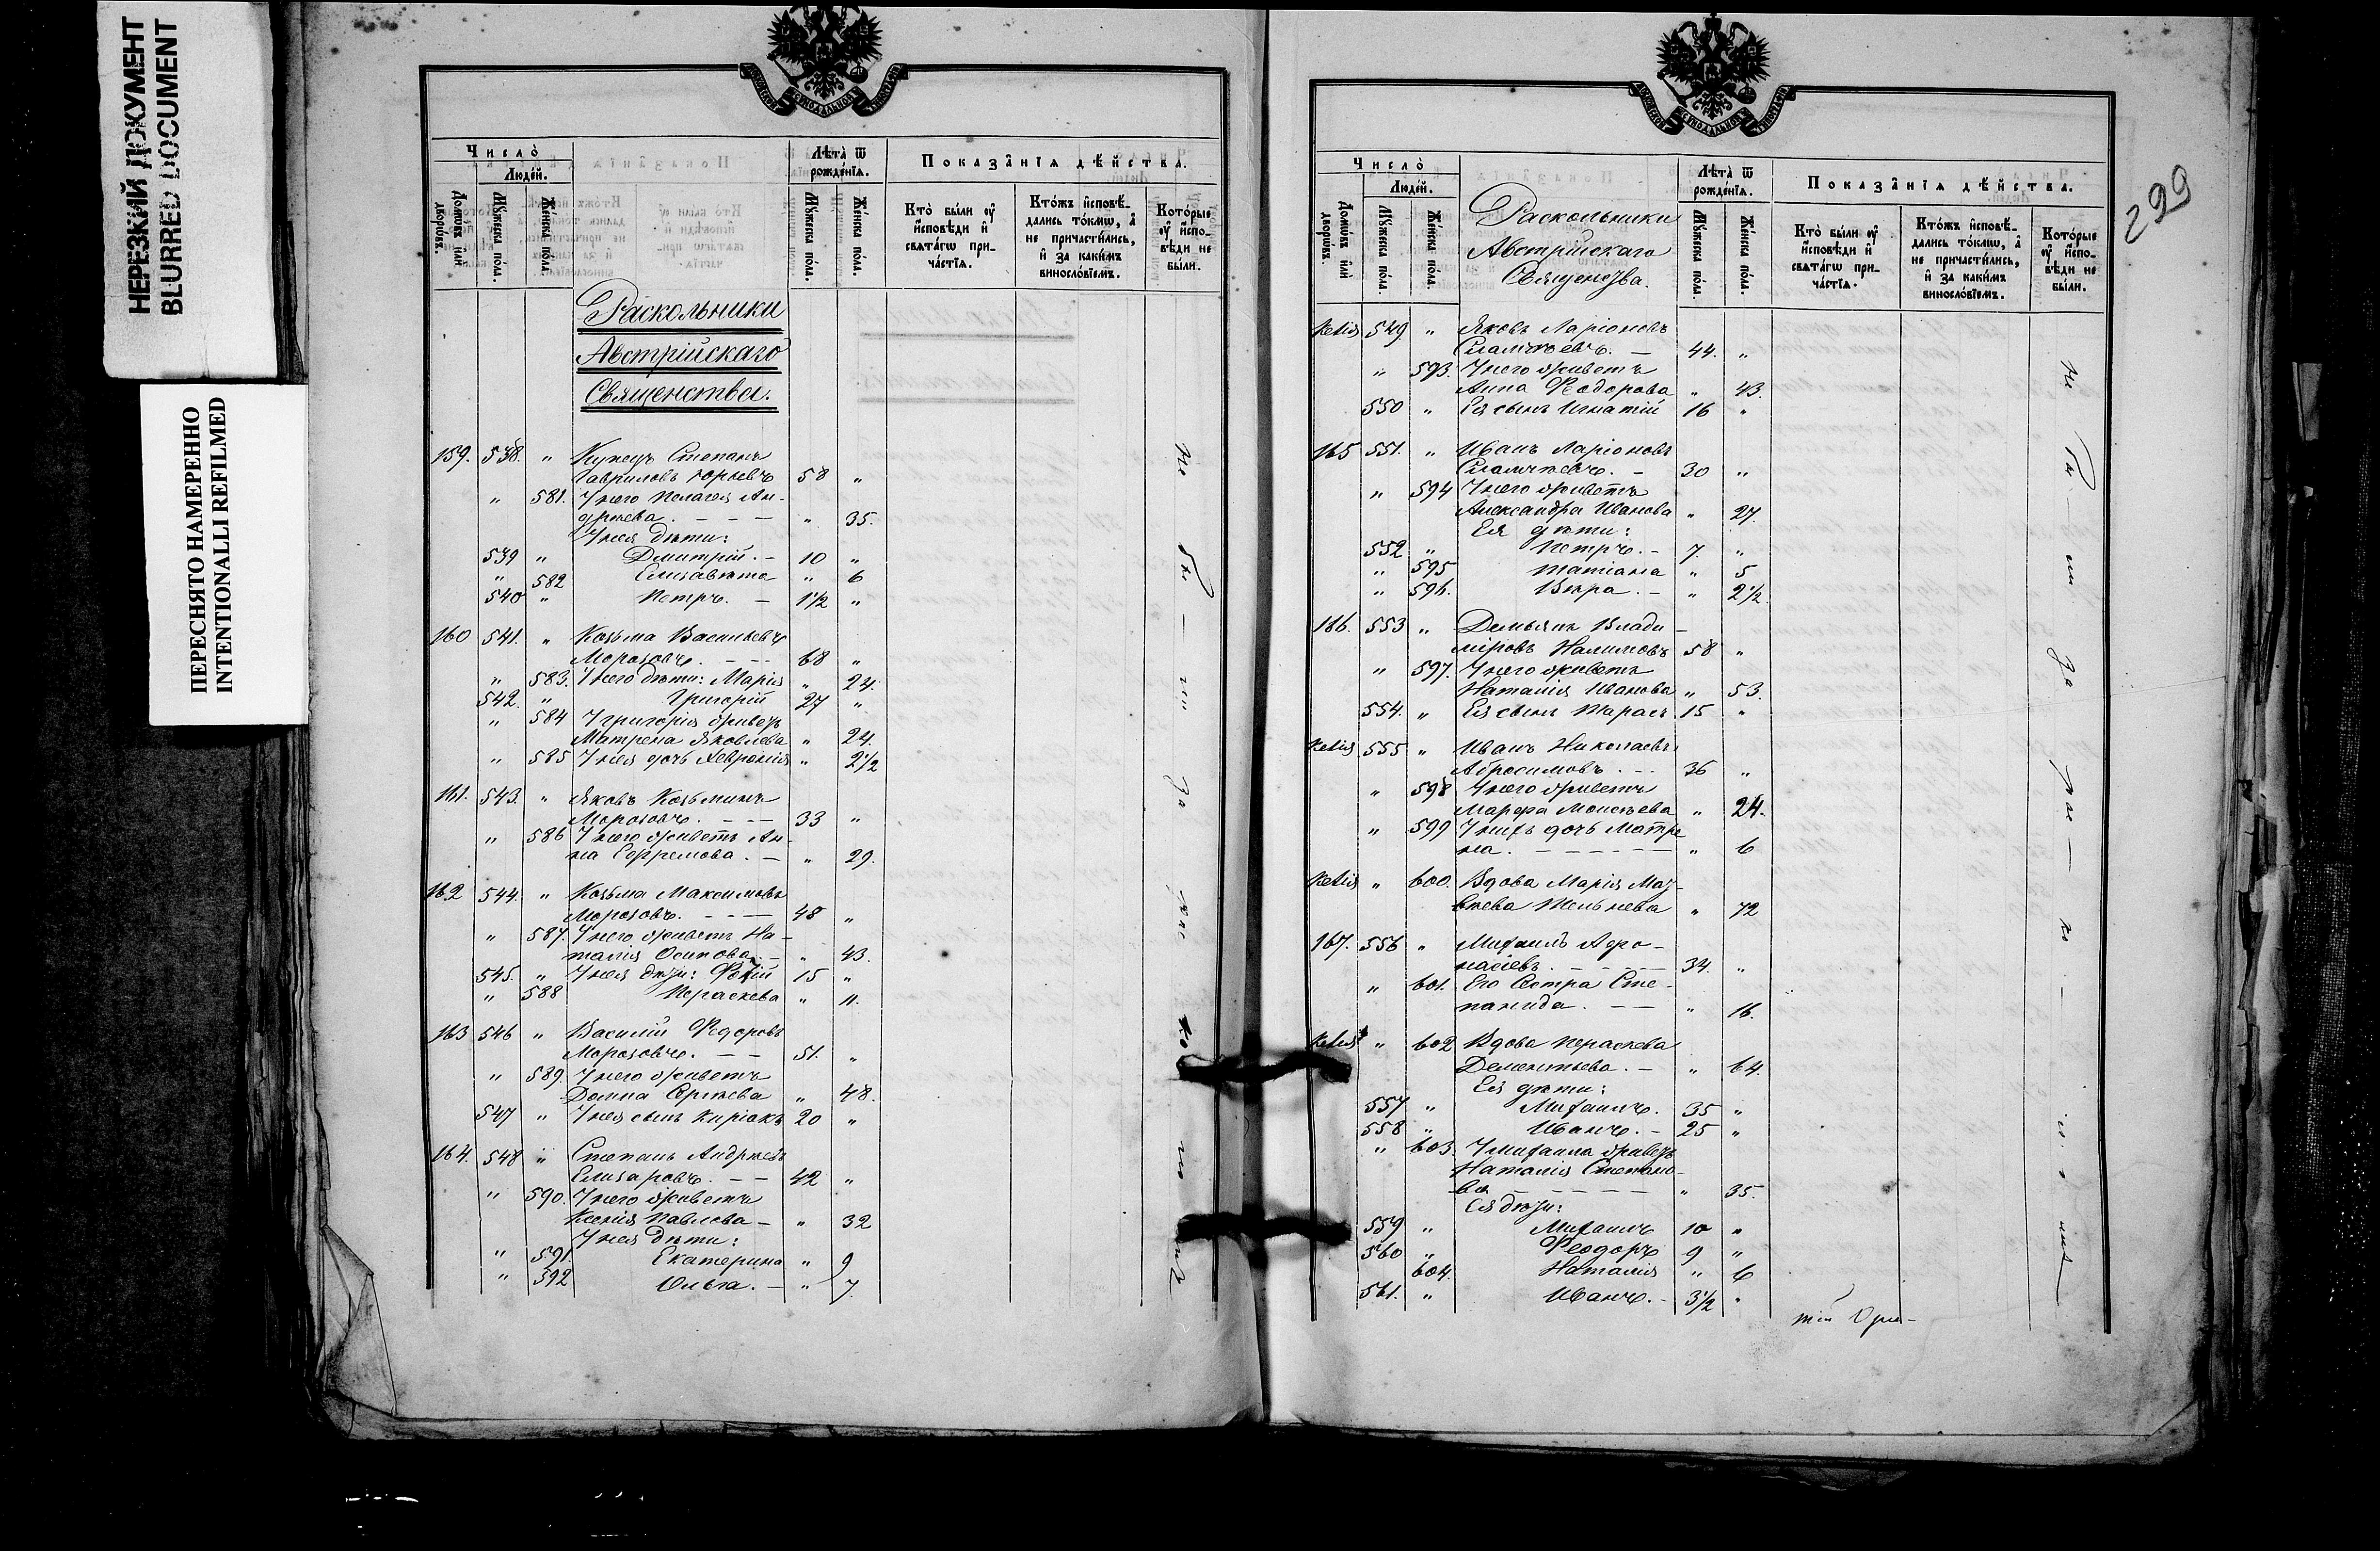 НЕРЕЗКИЙ ДОКУМЕНТ
BLURRED DOCUMENT
ПЕРЕСНЯТО НАМЕРЕННО
INTENTIONALLI REFILMED
МОСКОВСКОЙ СѴНОДАЛЬНОЙ ТИПОГРАФІИ
Число̀
Людéй.
Домѡвъ и҆лѝ дворѡвъ.
Мꙋ́жеска по́ла.
Же́нска по́ла.
Лѣта̀ ѿ рожде́нїѧ.
Мꙋ́жеска по́ла.
Же́нска по́ла.
Показа̑нїѧ дѣ́йства.
Кто̀ бы́ли ᲂу҆
и҆́сповѣди и҆
свѧта́гѡ при-
ча́стїѧ.
Кто́жъ и҆сповѣ́-
дались то́кмѡ, а҆
не причасти́лись,
и҆ за каки́мъ
винословїемъ.
Кото́рые
ᲂу҆ и҆́спо-
вѣди не
бы́ли.
Раскольники
Австрійскаго
Священства.
159. 538. " Купецъ Степанъ
Гавриловъ Юрьевъ 58 "
" 581. У него Пелагея Ан-
дреева. — — — " 35.
У нея дѣти:
539 " Дмитрій. — 10 "
" 582 Елизавета " 6
540 " Петръ. — 1½ "
160 541. " Козьма Васильевъ
Морозовъ. — — 68 "
" 583. У него дѣти: Марія " 24.
542. " Григорій 27 "
" 584 У Григорія живетъ
Матрена Яковлева " 24.
" 585 У нея дочь Хевронія " 2½
161. 543. " Яковъ Козьминъ
Морозовъ. — — — 33 "
" 586 У него живетъ Ан-
на Ефремова. — " 29.
162 544. " Козьма Максимовъ
Морозовъ. — — — 48 "
" 587. У него живетъ На-
талія Осипова. — " 43.
545. " У нея дѣти: Фотій 15 "
" 588 Параскева " 11.
163 546 " Василій Ѳедоровъ
Морозовъ. — — 51. "
" 589. У него живетъ
Домна Сергѣева " 48.
547 " У нея сынъ Киріакъ 20 "
164. 548 " Степанъ Андреевъ
Елизаровъ. — — 42 "
" 590. У него живетъ
Ксенія Павлова — " 32
У нея дѣти:
" 591. Екатерина " 9
" 592 Ольга. — " 7.
МОСКОВСКОЙ СѴНОДАЛЬНОЙ ТИПОГРАФІИ
299
Число̀
Людéй.
Домѡвъ и҆лѝ дворѡвъ.
Мꙋ́жеска по́ла.
Же́нска по́ла.
Раскольники
Австрійскаго
Священства.
Лѣта̀ ѿ рожде́нїѧ.
Мꙋ́жеска по́ла.
Же́нска по́ла.
Показа̑нїѧ дѣ́йства.
Кто̀ бы́ли ᲂу҆
и҆́сповѣди и҆
свѧта́гѡ при-
ча́стїѧ.
Кто́жъ и҆сповѣ́-
дались то́кмѡ, а҆
не причасти́лись,
и҆ за каки́мъ
винословїемъ.
Кото́рые
ᲂу҆ и҆́спо-
вѣди не
бы́ли.
Келія 549. " Яковъ Ларіоновъ
44. "
" 593. У него живетъ
Анна Ѳеодорова " 43.
550 " Ея сынъ Игнатій 16 "
165 551. " Иванъ Ларіоновъ
30 "
" 594 У него живетъ
Александра Иванова " 27.
Ея дѣти:
552 " Петръ. — 7. "
" 595 Татіана " 5
" 596. Вѣра. — " 2½.
166. 553 " Демьянъ Влади-
міровъ Налимовъ 58 "
" 597. У него живетъ
Наталія Иванова " 53.
554. " Ея сынъ Тарасъ 15 "
Келія 555 " Иванъ Николаевъ
Абросимовъ. — 36 "
" 598 У него живетъ
Марфа Моисѣева " 24.
" 599 У нихъ дочь Матре
на. — — — — — " 6
Келія " 600. Вдова Марія Мат-
вѣева " 72
167. 556 " Михаилъ Афо-
насіевъ. — — — 34. "
" 601. Его Сестра Сте-
панида. — — " 16.
Келія " 602 Вдова Параскева
Дементьева. — " 64.
Ея дѣти:
557 " Михаилъ. 35 "
558 " Иванъ. — 25 "
" 603. У Михаила живетъ
Наталія Степано-
ва — — — — — " 35.
Ея дѣти:
559 " Михаилъ 10 "
560 " Ѳеодоръ 9 "
604. Наталія " 6
561. " Иванъ. — 3½ "